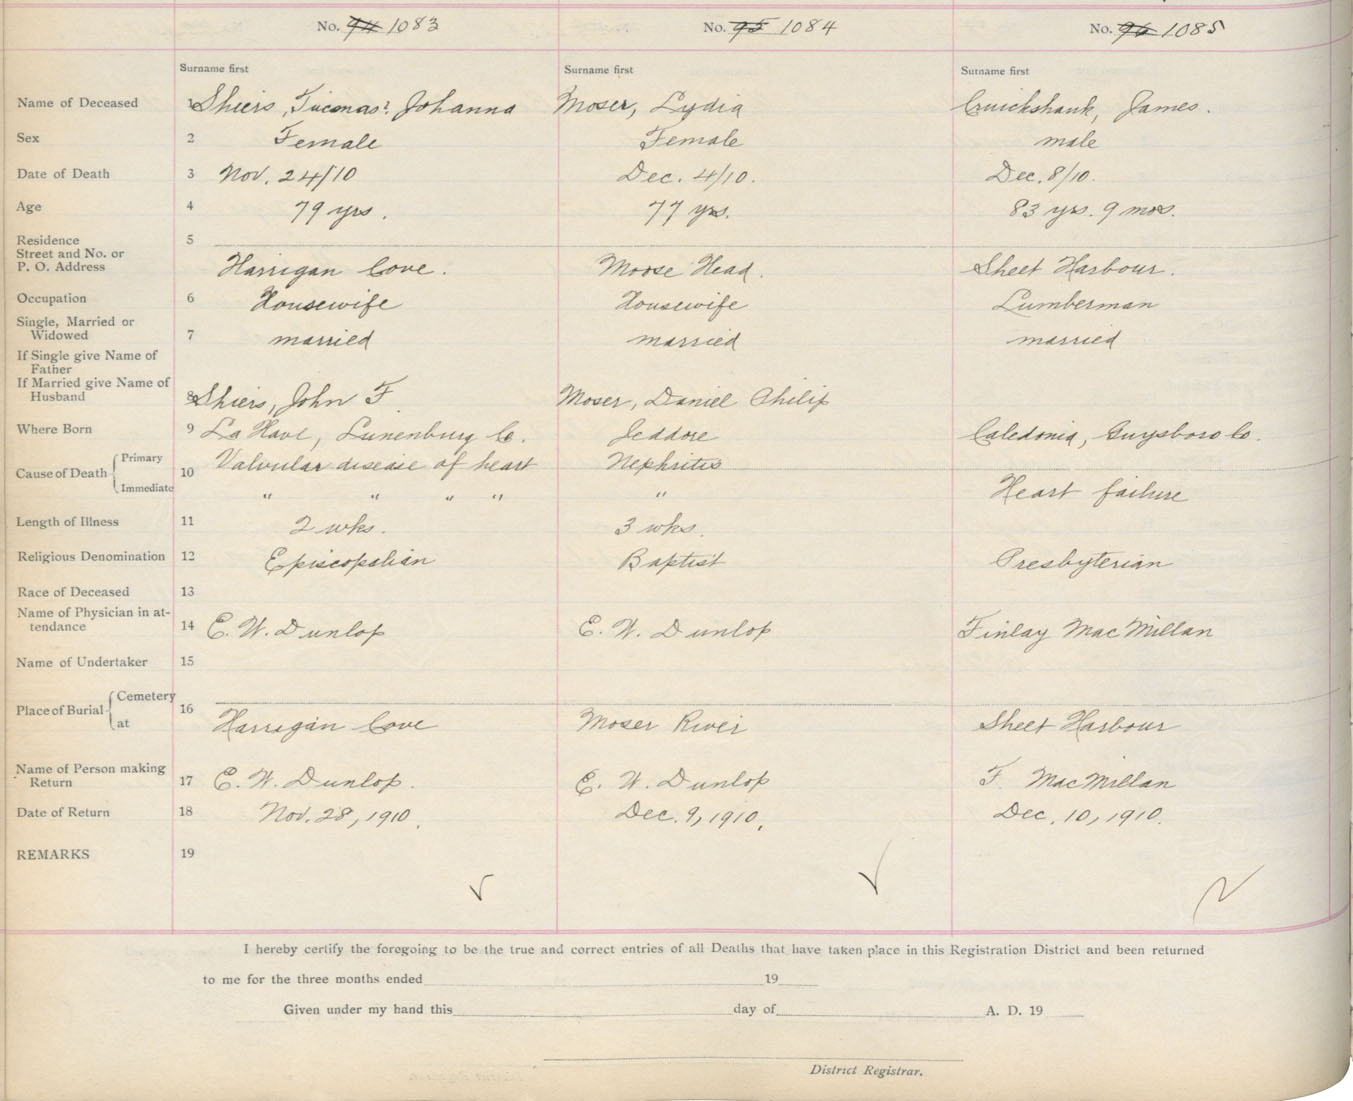 No. 94 1083 No. 95 1084 No. 96 1085
Surname first Surname first Surname first
Name of Deceased 1 Shiers, Johanna Moser, Lydia Cruickshank, James.
Sex 2 Female Female male
Date of Death 3 Nov. 24/10 Dec. 4/10. Dec. 8/10.
Age 4 79 yrs. 77 yrs. 83 yrs. 9 mos.
Residence 5
Street and No. or
P. O. Address Harrigan Cove. Moose Head. Sheet Harbour.
Occupation 6 Housewife Housewife Lumberman
Single, Married or
Widowed 7 married married married
If Single give Name of
Father
If Married give Name of
Husband 8 Shiers, John F Moser, Daniel Philip
Where Born 9 La Have, Lunenburg Co. Jeddore Caledonia, Guysboro Co.
Cause of Death Primary 10 Valvular disease of heart Nephritis
Immediate " " " " " Heart failure
Length of Illness 11 2 wks. 3 wks.
Religious Denomination 12 Episcopalian Baptist Presbyterian
Race of Deceased 13
Name of Physician in at-
tendance 14 E. W. Dunlop E. W. Dunlop Finlay MacMillan
Name of Undertaker 15
Place of Burial Cemetery 16
at Harrigan Cove Moser River Sheet Harbour
Name of Person making
Return 17 E. W. Dunlop. E. W. Dunlop F MacMillan
Date of Return 18 Nov. 28, 1910. Dec. 9, 1910. Dec. 10, 1910.
REMARKS 19
I hereby certify the foregoing to be the true and correct entries of all Deaths that have taken place in this Registration District and been returned
to me for the three months ended 19
Given under my hand this day of A. D. 19
District Registrar.